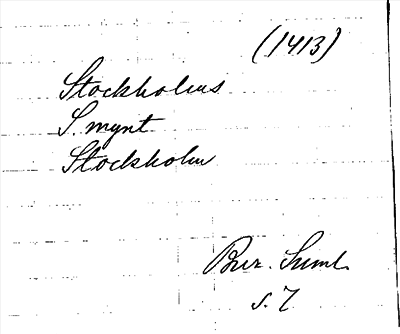 (1413)
Stockholms
S. mynt
Stockholm
Bur. Suml.
s. 7